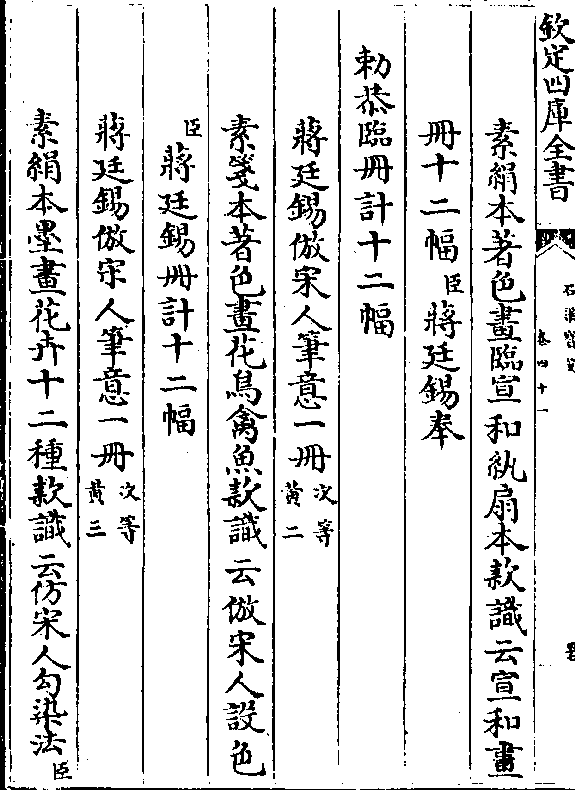 欽定四庫全書
石渠寶笈
卷四十一
素絹本著色畫臨宣和紈扇本款識云宣和畫
冊十二幅臣蔣廷錫奉
勅恭臨冊計十二幅
蔣廷錫倣宋人筆意一冊次等黃二
素箋本著色畫花鳥禽魚款識云倣宋人設色
臣蔣廷錫冊計十二幅
蔣廷錫倣宋人筆意一冊次等黃三
素絹本墨畫花卉十二種款識云仿宋人勾染法臣